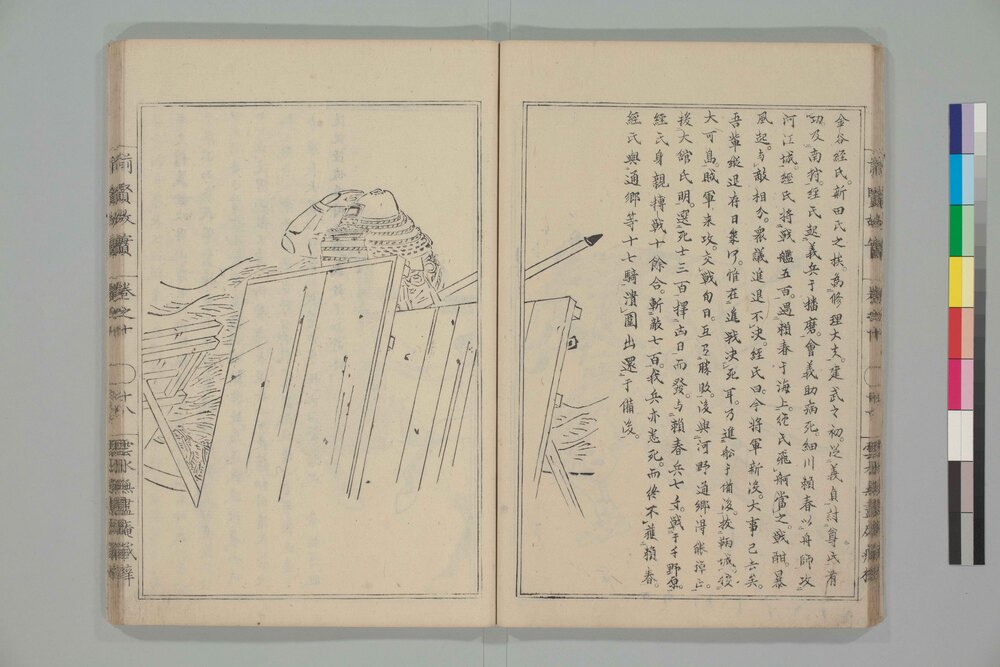 金谷経氏。新田氏之族。為修理大夫。建武之初。従義貞討尊氏有
功。及南狩。経氏起義兵于播磨。會義助病死。細川頼春以舟師攻
河江城。経氏将戦艦五百。遇頼春于海上。経氏飛舸當之。戦酣。暴
風起。与敵相分。衆議進退不決。経氏曰。今将軍新没。大事已去矣。
吾輩縦退存日㡬何。惟在進戦決死耳。乃進船于備後。抜鞆城。役
大可島。賊軍来攻。交戦旬日。互有勝敗。後與河野通郷得能弾正。
援大館氏明。選死士三百。擇凶日而發。与頼春兵七千。戦于千町原。
経氏身親搏戦十餘合。斬敵七百。我兵亦悉死。而終不獲頼春。
経氏與通郷等十七騎潰圍出還于備後。
前賢故實
巻之十
十八
雲水無盡庵蔵梓